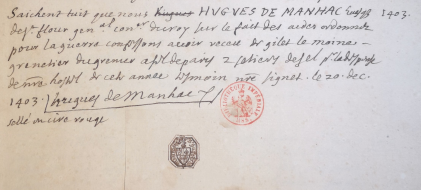 Saichent tuit que nous Hugues HUGUES DE MANHAC Evesq 1403.
de St flour gen^al con^er du roy sur le fait des aides ordonnez
pour la guerre confessons avoir receu de gilet le moine
grenetier du grenier a sel de paris 2 setiers de sel p^r la desp
de nre hostel de cette année tesmoin nre signet. le 20. dec.
1403. / hugues de Manhac
sellé en cire rouge
BIBLIOTHEQUE IMPERIALE